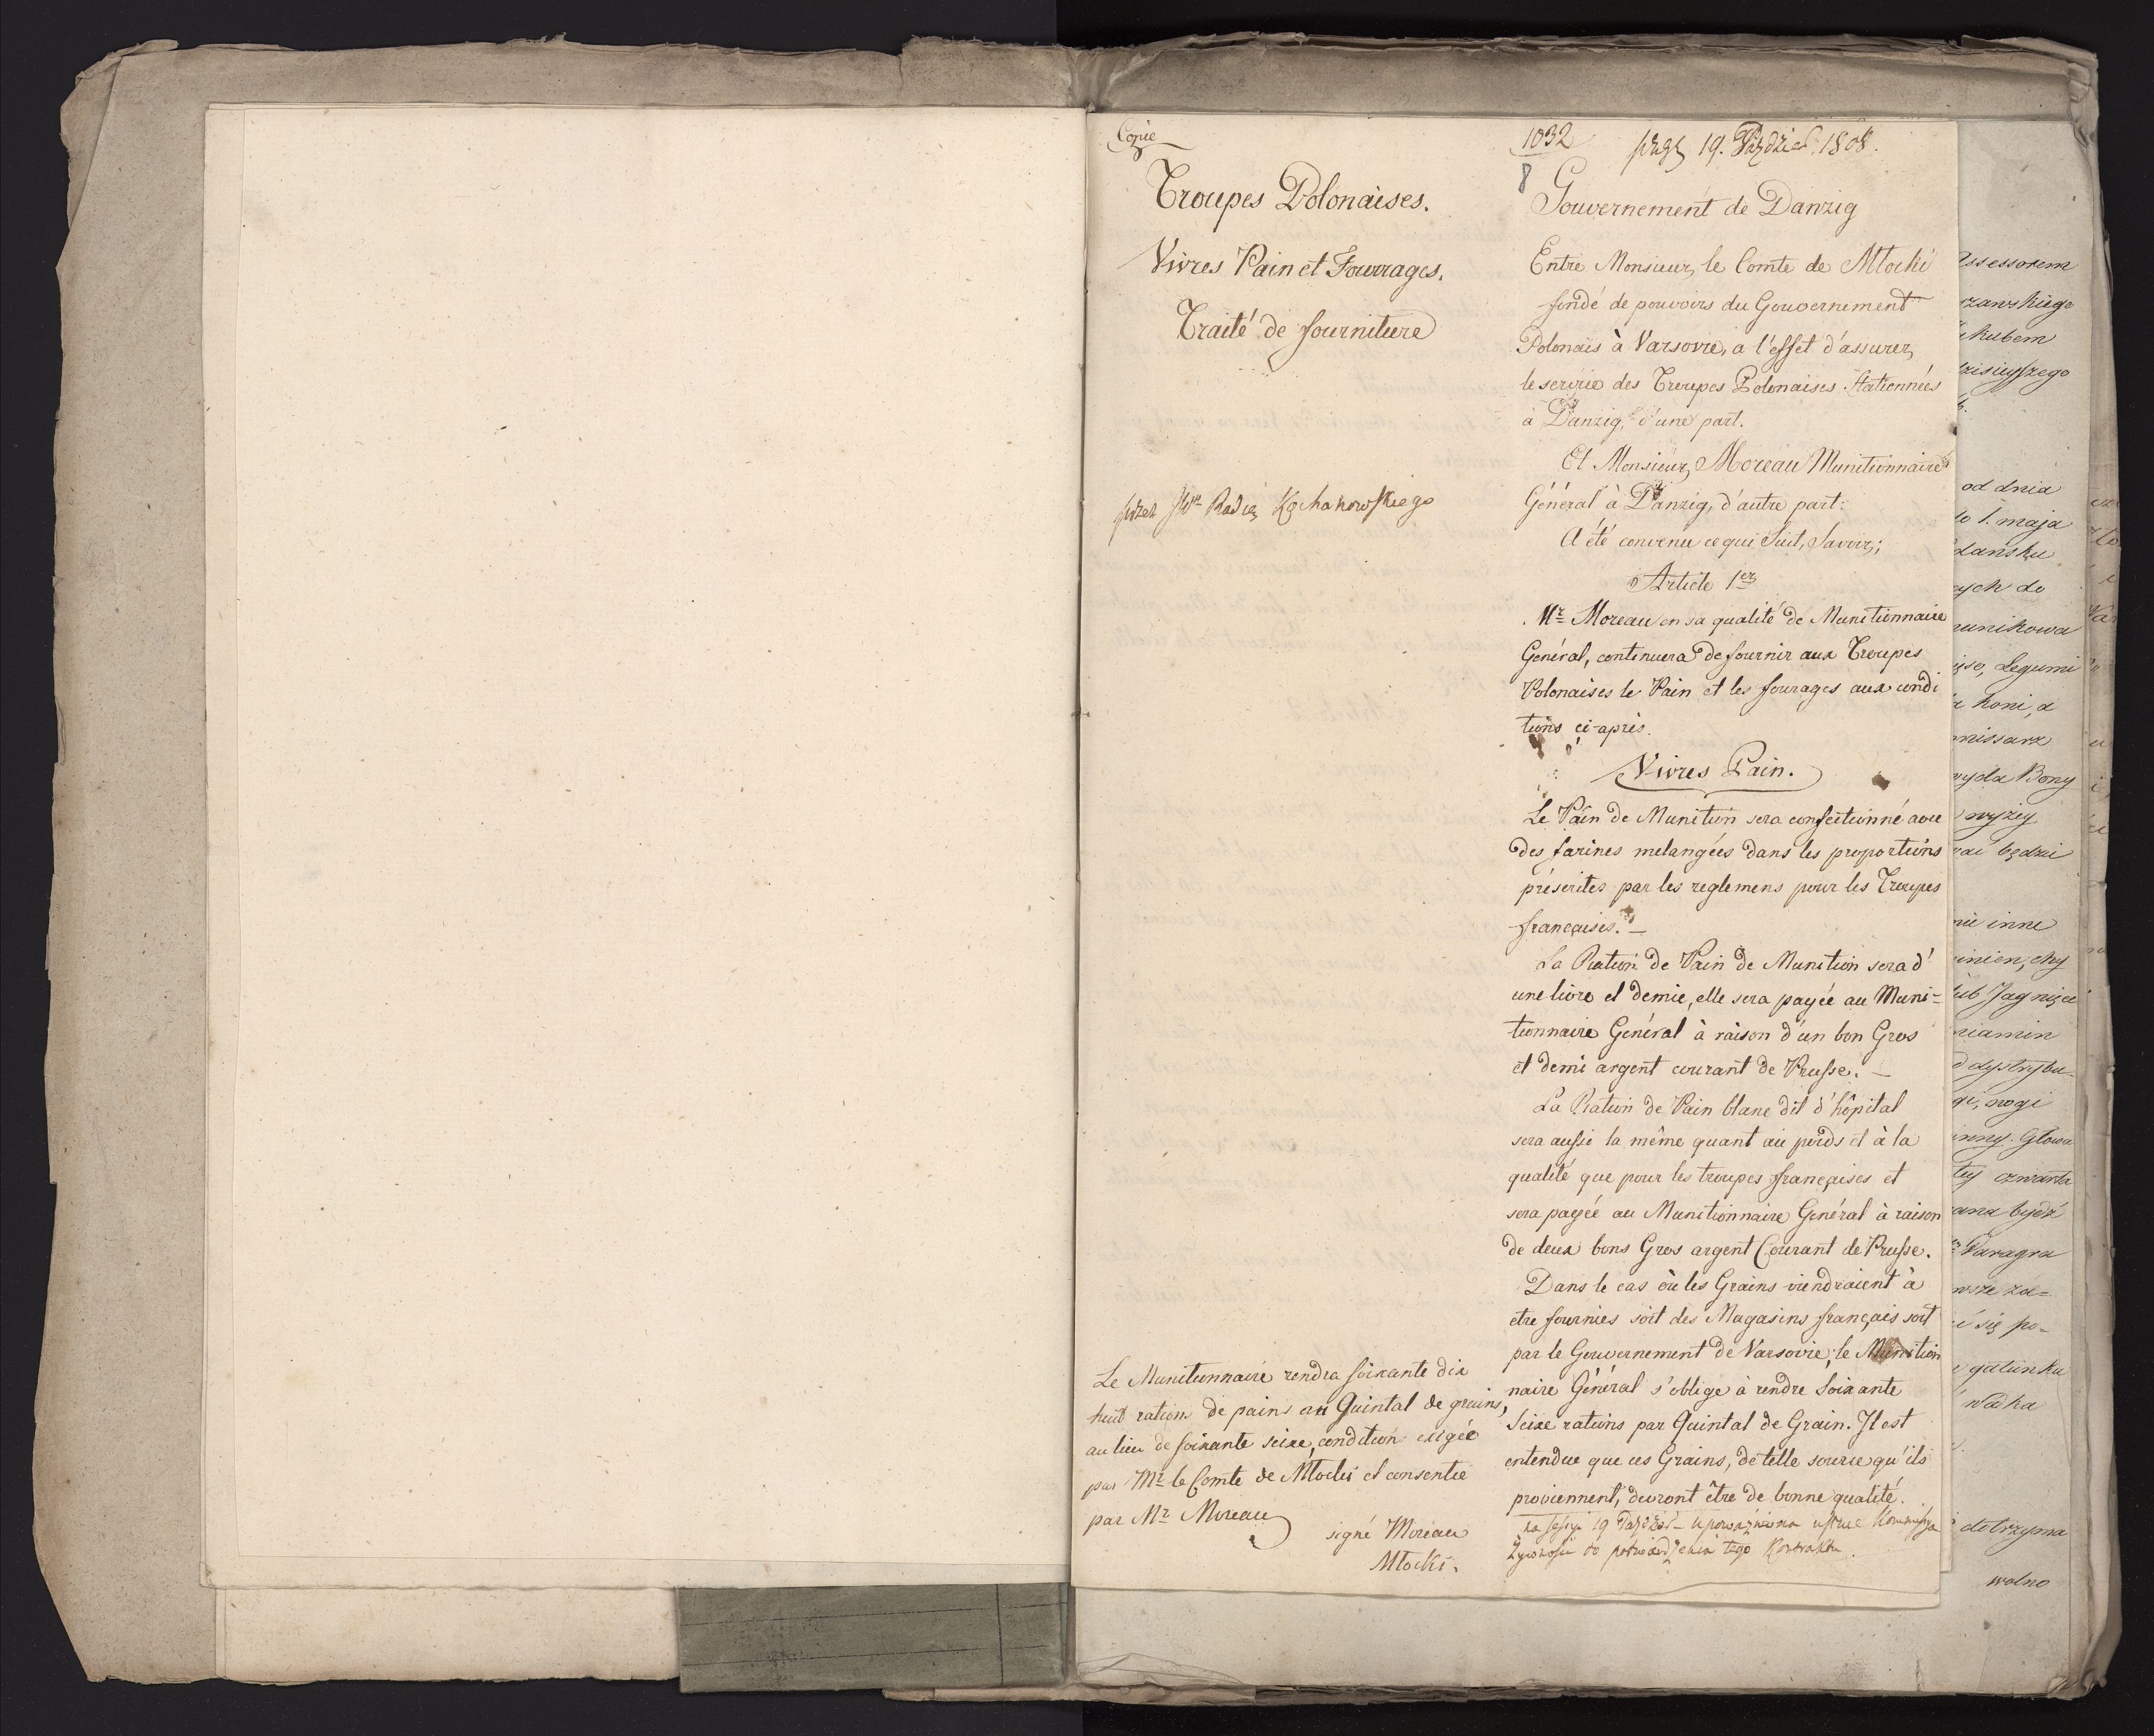 Copie
Troupes Polonaises.
Vivres Pain et Fourrages.
Traité de fourniture
przez JWo Radcę Kochanowskiego
Le Munitionnaire rendra soixante dix
huit rations de pains au Quintal de grains,
au lieu de soixante seize, condition exigée
par Mr le Comte de Mlocki et consentie
par Mr Moreau
signé Moreau
Mlocki.
1032
8
19. Paździer. 1808.
Gouvernement de Danzig
Entre Monsieur, le Comte de Mlocki
fondé de pouvoirs du Gouvernement
Polonais à Varsovie, a l'effet d'assurer,
le service des Troupes Polonaises Stationnées
à Danzig, d'une part.
Et Monsieur, Moreau Munitionnaire
Général à Danzig, d'autre part:
A été convenu ce qui Suit, Savoir;
Article 1er
Mr Moreau en sa qualité de Munitionnaire
Général, continuera de fournir aux Troupes
Polonaises le Pain et les fourages aux condi
tions ci-après.
Vivres Pain.
Le Pain de Munition sera confectionné avec
des farines melangées dans les proportions
préscrites par les reglemens pour les Troupes
françaises. _
La Ration de Pain de Munition sera d'
une livre et demie, elle sera payée au Muni=
tionnaire Général à raison d'un bon Gros
et demi argent courant de Prusse. _
La Ration de Pain blanc dit d'hôpital
sera aussi la même quant au poids et à la
qualité que pour les troupes françaises et
sera payée au Munitionnaire Général à raison
de deux bons Gros argent Courant de Prusse.
Dans le cas où les Grains viendraient à
etre fournies soit des Magasins français soit
par le Gouvernement de Varsovie, le Munition
naire Général s'oblige à rendre Soixante
Seize rations par Quintal de Grain. Il est
entendue que ces Grains, de telle source qu'ils
proviennent, devront être de bonne qualité.
na sessyi 19 Paździer
Żywności do potwierdzenia tego Kontraktu.
Assessorem
szawskiego
kubem
dzisieyszego
od dnia
do 1. maja
Gdańsku
ych do
unikowa
Legumi
koni, a
missarz
wyda Bony
wyżey
będzie
inne
Jagnięce
niamin
dystrybu=
nogi
Głowa
czwarta
bydź
Paragra
za=
się po=
gatunku
dotrzyma
wolno